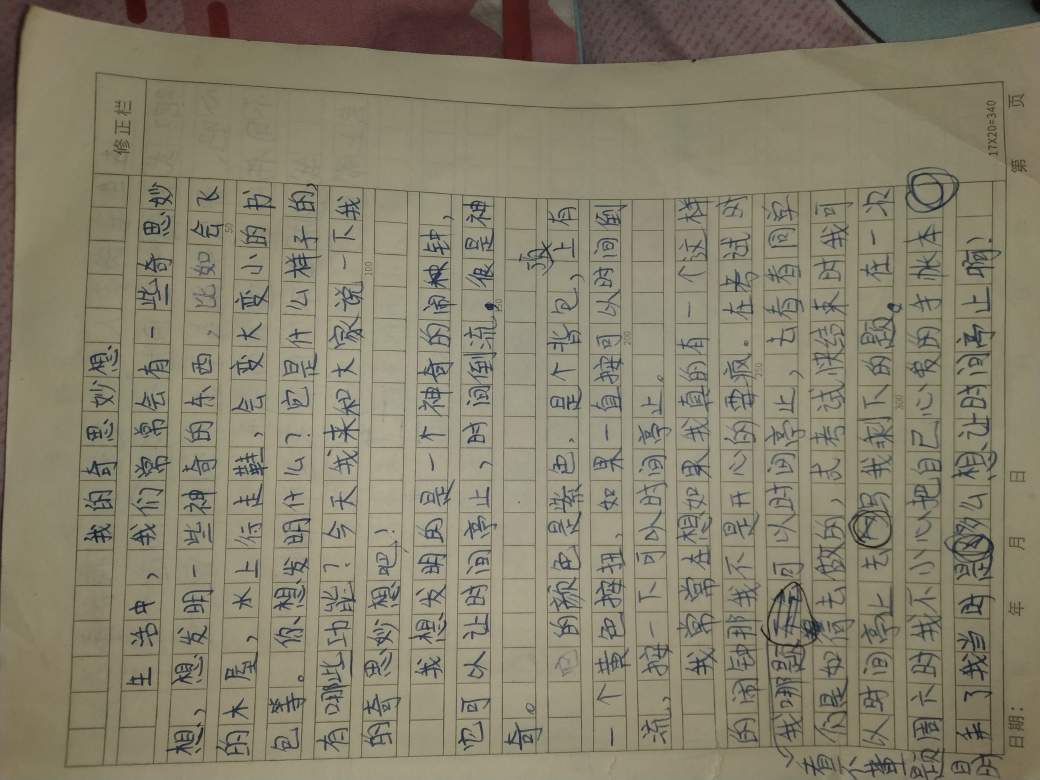 修正栏
我的奇思妙想
生活中，我们常常会有一些奇思妙
想，想发明一些神奇的东西，比如会飞
的木屋，水上行走鞋，会变大变小的书
包等。你想发明什么？它是什么样子的，
有哪些功能？今天我来和大家说一下我
的奇思妙想吧！
我想发明的是一个神奇的闹钟，
它可以让时间亭止，时间倒流。很是神
奇。
它的颜色是紫色，是个背包，上有
一个黄色按扭，如果一直按可以时间倒
流，按一下可以时间亭止。
我常常在想如果我真的有一个这样
的闹钟那我不是开心的要疯。在考试时
我哪题可以时间亭止，去看看同学
们是如何去做的，式考试快结束时我可
以时间亭止去写我剩下的题。在一次
周六时我不小心把自己心爱的手帐本
弄丢了我当时是多么想让时间亭止啊！
50
100
150
200
250
300
17X20=340
日期： 年 月 日 第 页